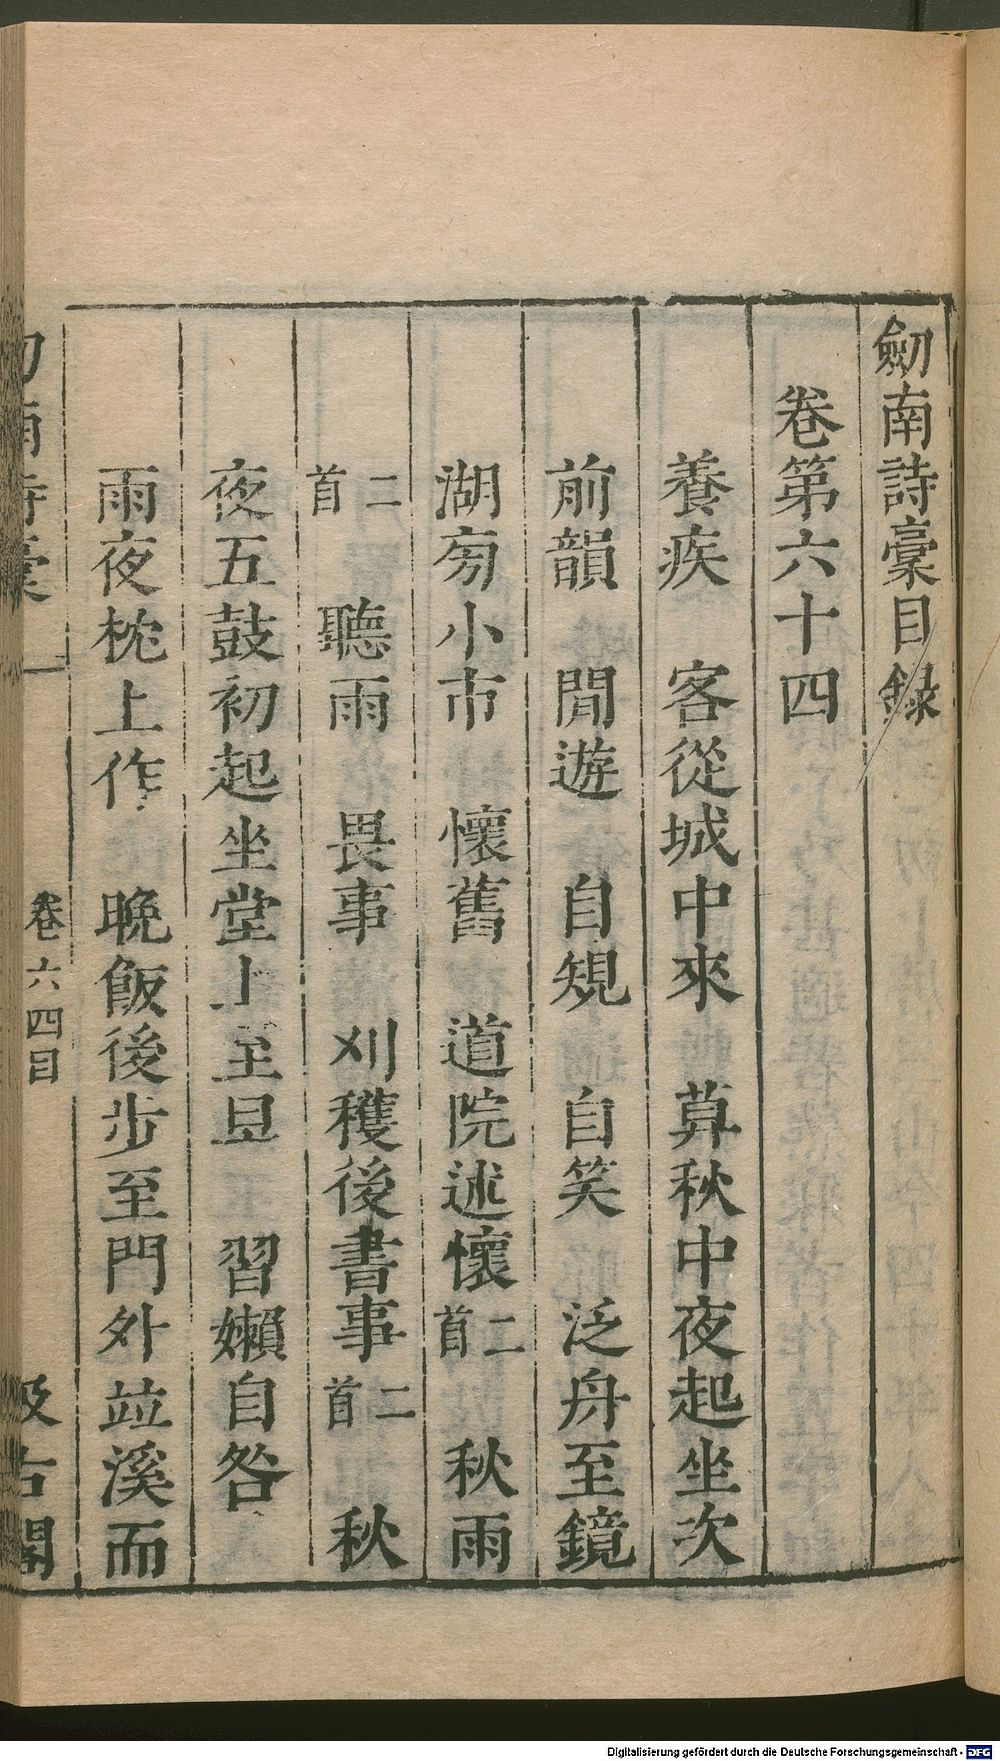 劒南詩稾目録
卷第六十四
養疾　客從城中來　算秋中夜起坐次
前韻　閒遊　自規　自笑　泛舟至鏡
湖旁小市　懷舊　道院述懷二首　秋雨
二首　聽雨　畏事　刈穫後書事二首　秋
夜五鼓初起坐堂上至旦　習嬾自咎
雨夜枕上作　晩飯後步至門外竝溪而
劒南詩稾　卷六四目　汲古閣
Digitalisierung gefördert durch die Deutsche Forschungsgemeinschaft - DFG